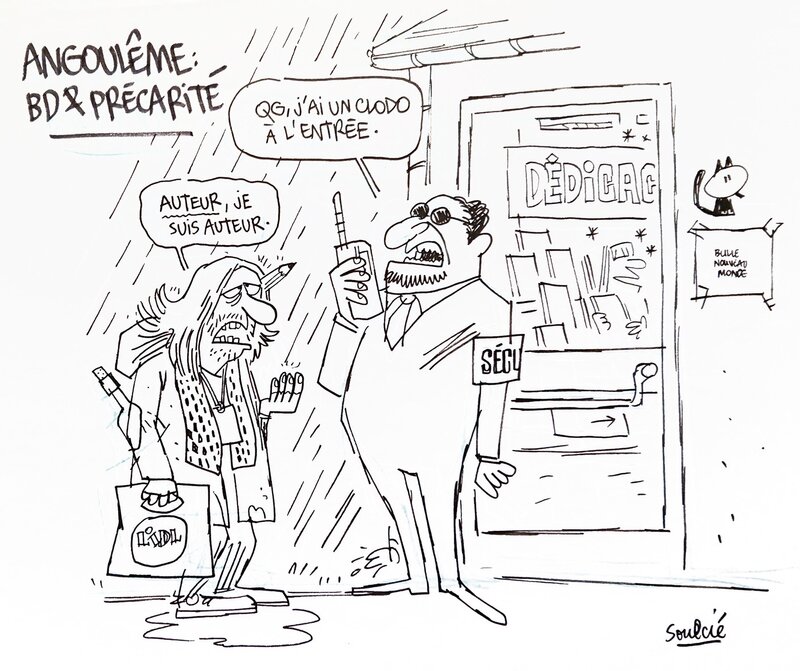 ANGOULÊME:
BD & PRÉCARITÉ
QG, J'AI UN CLODO
À L'ENTRÉE.
AUTEUR, JE
SUIS AUTEUR.
DÉDICAC
BULLE
NOUVEAU
MONDE
SÉCU
LIDL
Soulcié